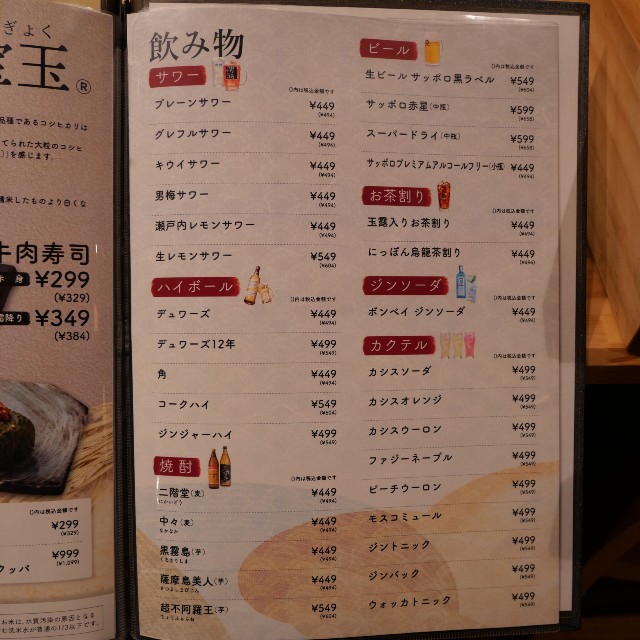 ぎょく
玉®
品種であるコシヒカリは
てられた大粒のコシヒ
を感じます。
精米したものより白くな
牛肉寿司
赤身 ¥299
(¥329)
霜降り ¥349
(¥384)
()内は税込金額です
¥299
(¥329)
¥999
(¥1,099)
クッパ
飲み物
サワー
()内は税込金額です
プレーンサワー ¥449
(¥494)
グレフルサワー ¥449
(¥494)
キウイサワー ¥449
(¥494)
男梅サワー ¥449
(¥494)
瀬戸内レモンサワー ¥449
(¥494)
生レモンサワー ¥549
(¥604)
ハイボール
()内は税込金額です
デュワーズ ¥449
(¥494)
デュワーズ12年 ¥499
(¥549)
角 ¥449
(¥494)
コークハイ ¥549
(¥604)
ジンジャーハイ ¥499
(¥549)
焼酎
()内は税込金額です
二階堂(麦) ¥449
にかいどう (¥494)
中々(麦) ¥449
なかなか (¥494)
黒霧島(芋) ¥449
くろきりしま (¥494)
薩摩島美人(芋) ¥449
(¥494)
超不阿羅王(芋) ¥549
(¥604)
ビール
()内は税込金額です
生ビール サッポロ黒ラベル ¥549
(¥604)
サッポロ赤星(中瓶) ¥599
(¥658)
スーパードライ(中瓶) ¥599
(¥658)
サッポロプレミアムアルコールフリー(小瓶) ¥449
(¥494)
お茶割り
()内は税込金額です
玉露入りお茶割り ¥449
(¥494)
にっぽん烏龍茶割り ¥449
(¥494)
ジンソーダ
()内は税込金額です
ボンベイ ジンソーダ ¥449
(¥494)
カクテル
()内は税込金額です
カシスソーダ ¥499
(¥549)
カシスオレンジ ¥499
(¥549)
カシスウーロン ¥499
(¥549)
ファジーネーブル ¥499
(¥549)
ピーチウーロン ¥499
(¥549)
モスコミュール ¥499
(¥549)
ジントニック ¥499
(¥549)
ジンバック ¥499
(¥549)
ウォッカトニック ¥499
(¥549)
お米は、水質汚染の原因となる
む洗米水が普通の1/3以下です。